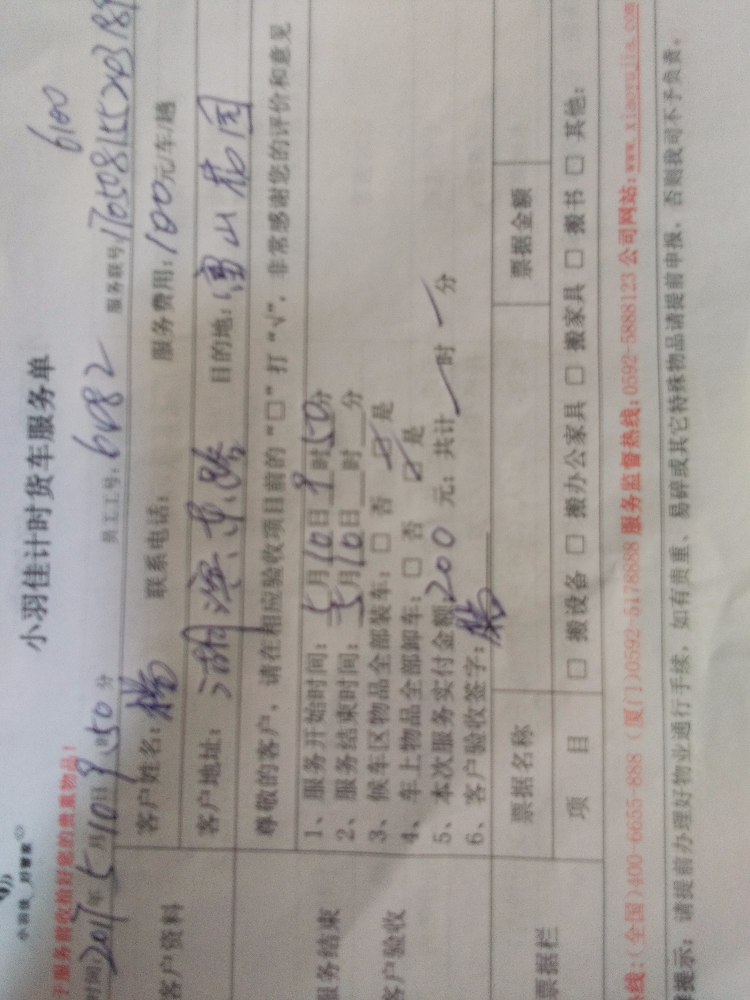 小羽佳计时货车服务单
于服务前收检好您的贵重物品!
时间:2017年5月10日9时50分 员工工号:6482 服务联号:
6100
客户资料
客户姓名:杨 联系电话: 服务费用:100元/车/趟
客户地址:湖滨东路 目的地:富山花园
尊敬的客户,请在相应验收项目前的“□”打“√”,非常感谢您的评价和意见
服务结束
客户验收
1、服务开始时间:5月10日9时50分
2、服务结束时间:5月10日__时__分
3、候车区物品全部装车:□ 否 ☑ 是
4、车上物品全部卸车:□ 否 ☑ 是
5、本次服务实付金额200元;共计 时 分
6、客户验收签字:杨
票据栏
票据名称 票据金额
项 目 □ 搬设备 □ 搬办公家具 □ 搬家具 □ 搬书 □ 其他:
线:(全国)400-6655-888 (厦门)0592-5178888 服务监督热线:0592-5888123 公司网站:www.xiaoyujia.com
提示:请提前办理好物业通行手续,如有贵重、易碎或其它特殊物品请提前申报,否则我司不予负责。